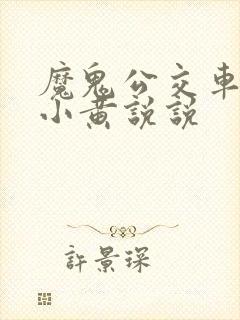 魔鬼公交車
小黃說說
許景琛